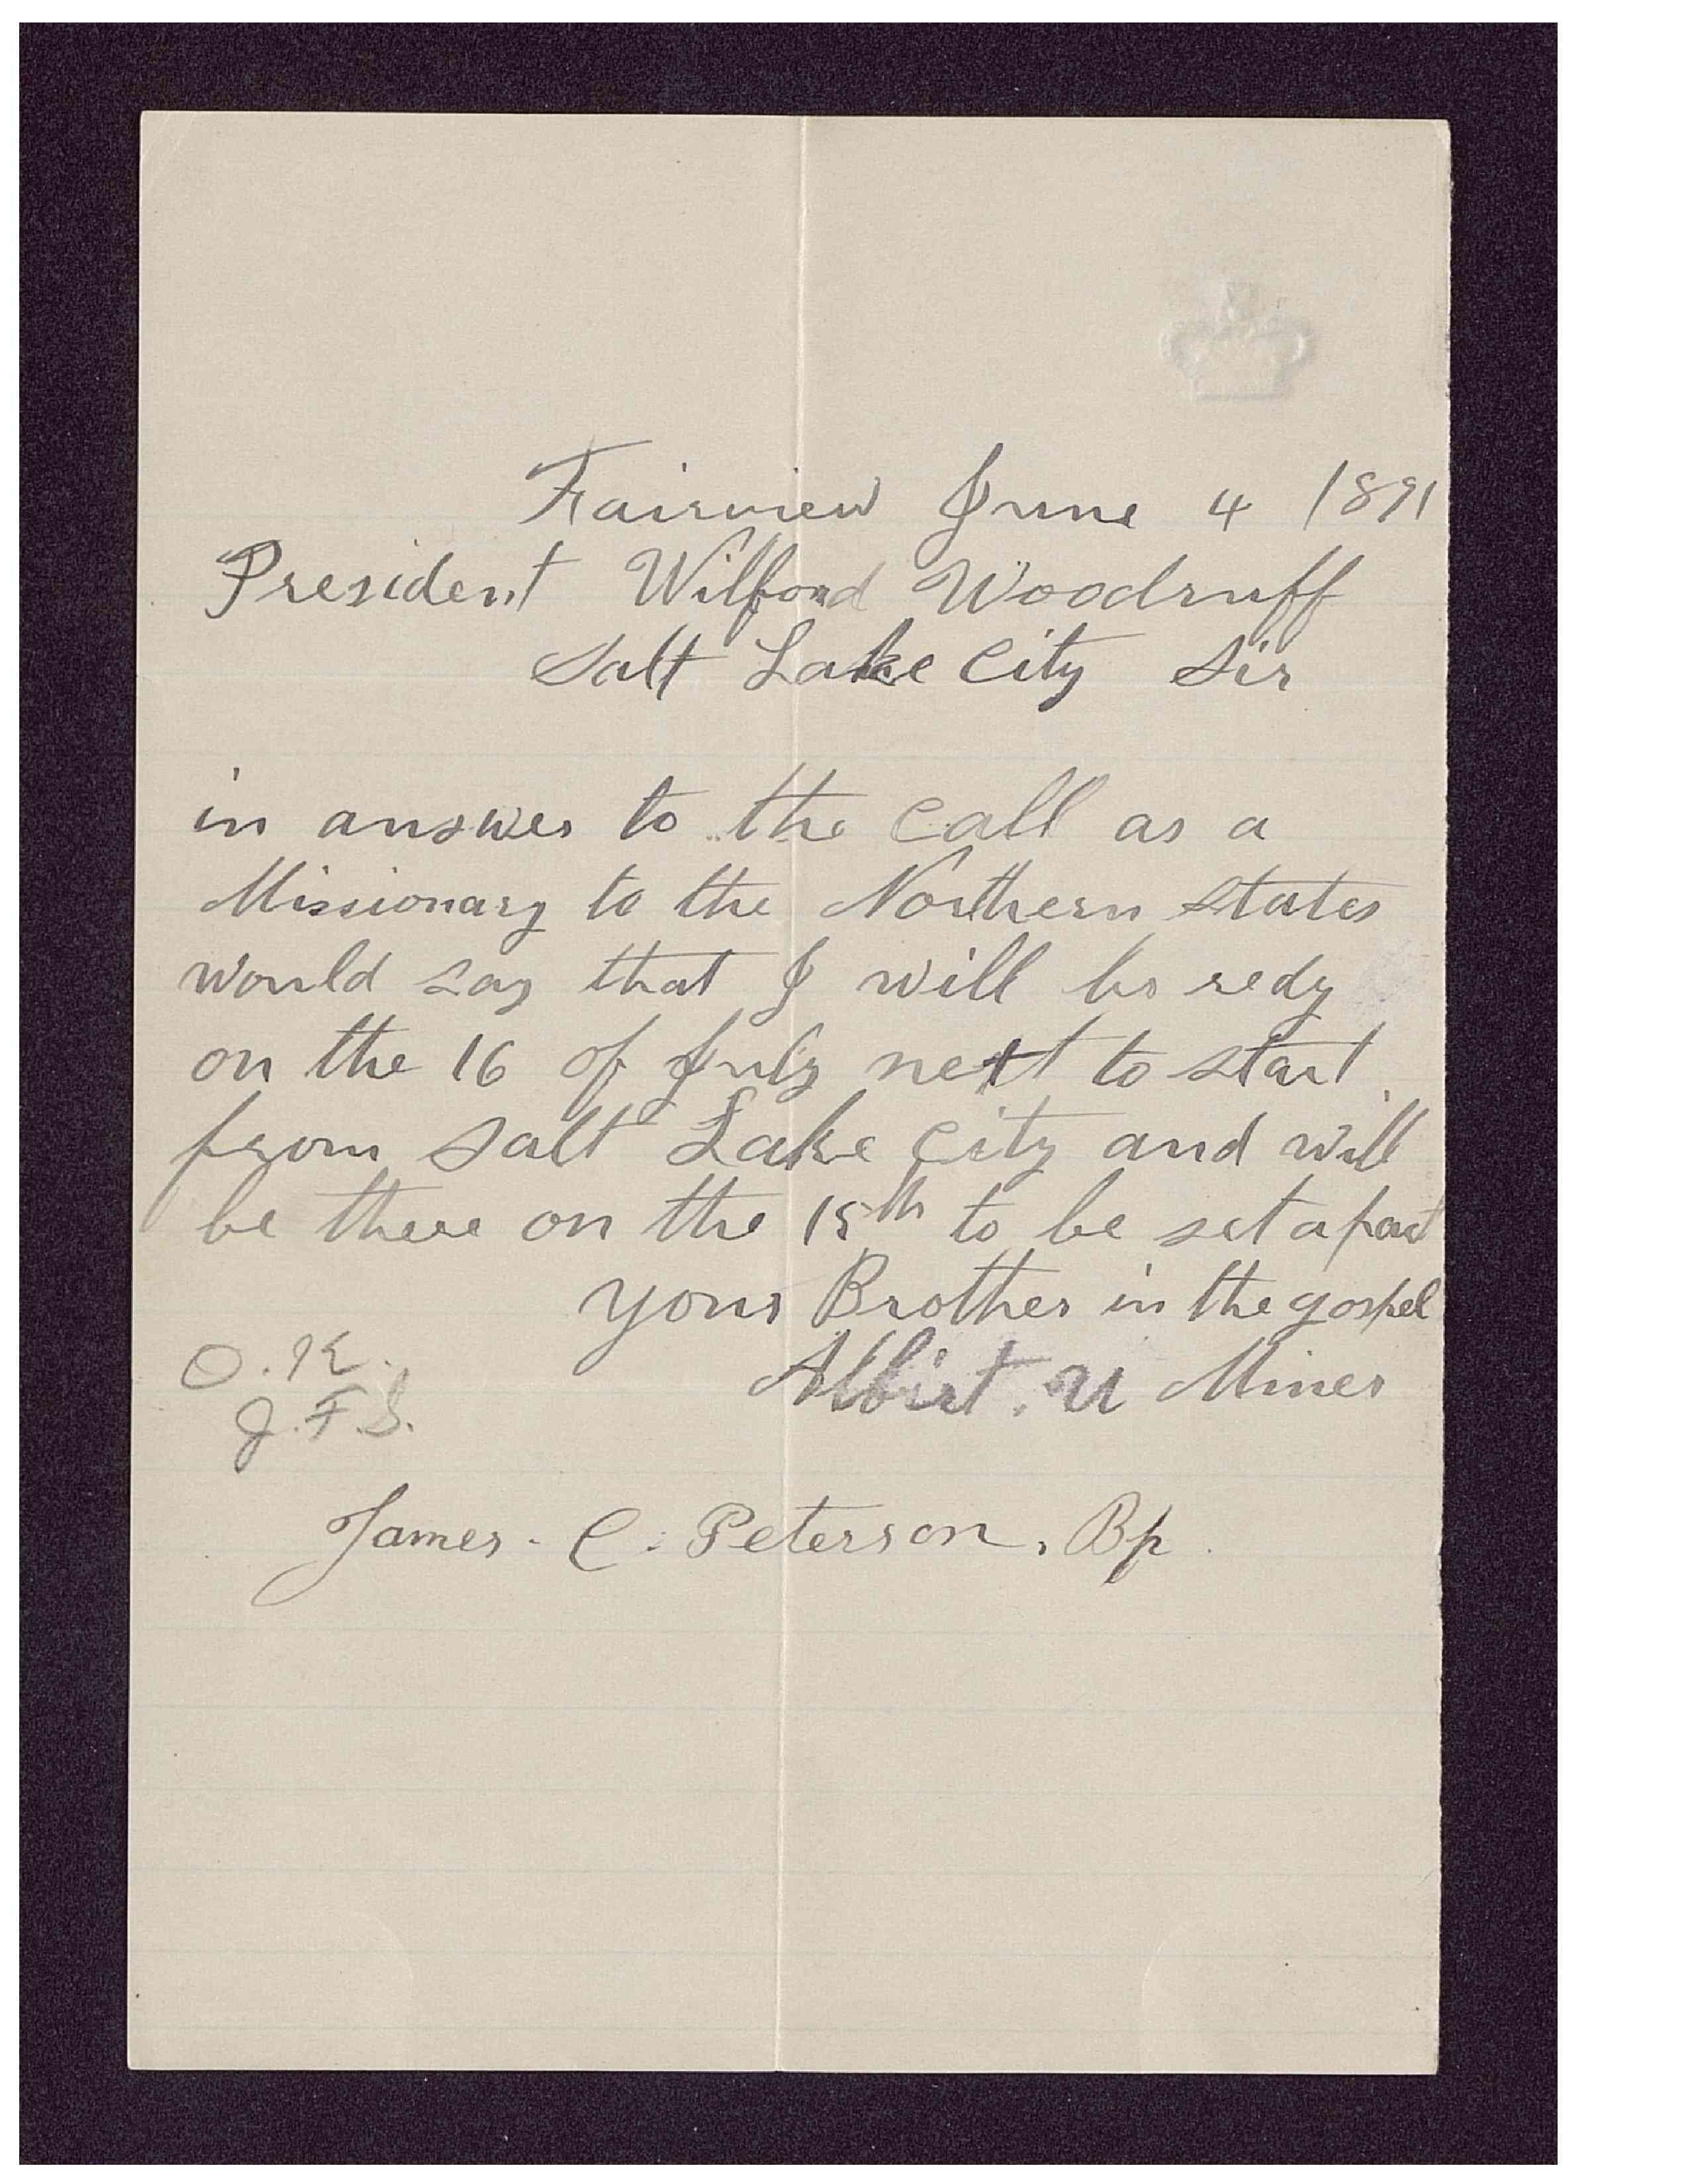 Fairview June 4 1891
President Wilford Woodruff
Salt Lake City Sir
in answer to the call as a
Missionary to the Northern states
would say that I will be redy
on the 16 of July next to start
from Salt Lake City and will
be there on the 15th to be set apart
your Brother in the gospel
Albirt. U Miner
O.K.
J.F.S.
James. C. Peterson. Bp.